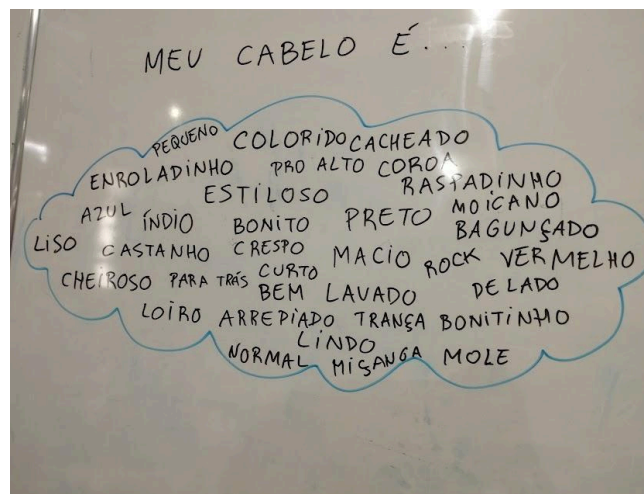 MEU CABELO É...
PEQUENO COLORIDO CACHEADO
ENROLADINHO PRO ALTO COROA
ESTILOSO RASPADINHO
AZUL ÍNDIO BONITO PRETO MOICANO
LISO CASTANHO CRESPO MACIO ROCK BAGUNÇADO
VERMELHO
CHEIROSO PARA TRÁS CURTO
BEM LAVADO DE LADO
LOIRO ARREPIADO TRANÇA BONITINHO
LINDO
NORMAL MIÇANGA MOLE